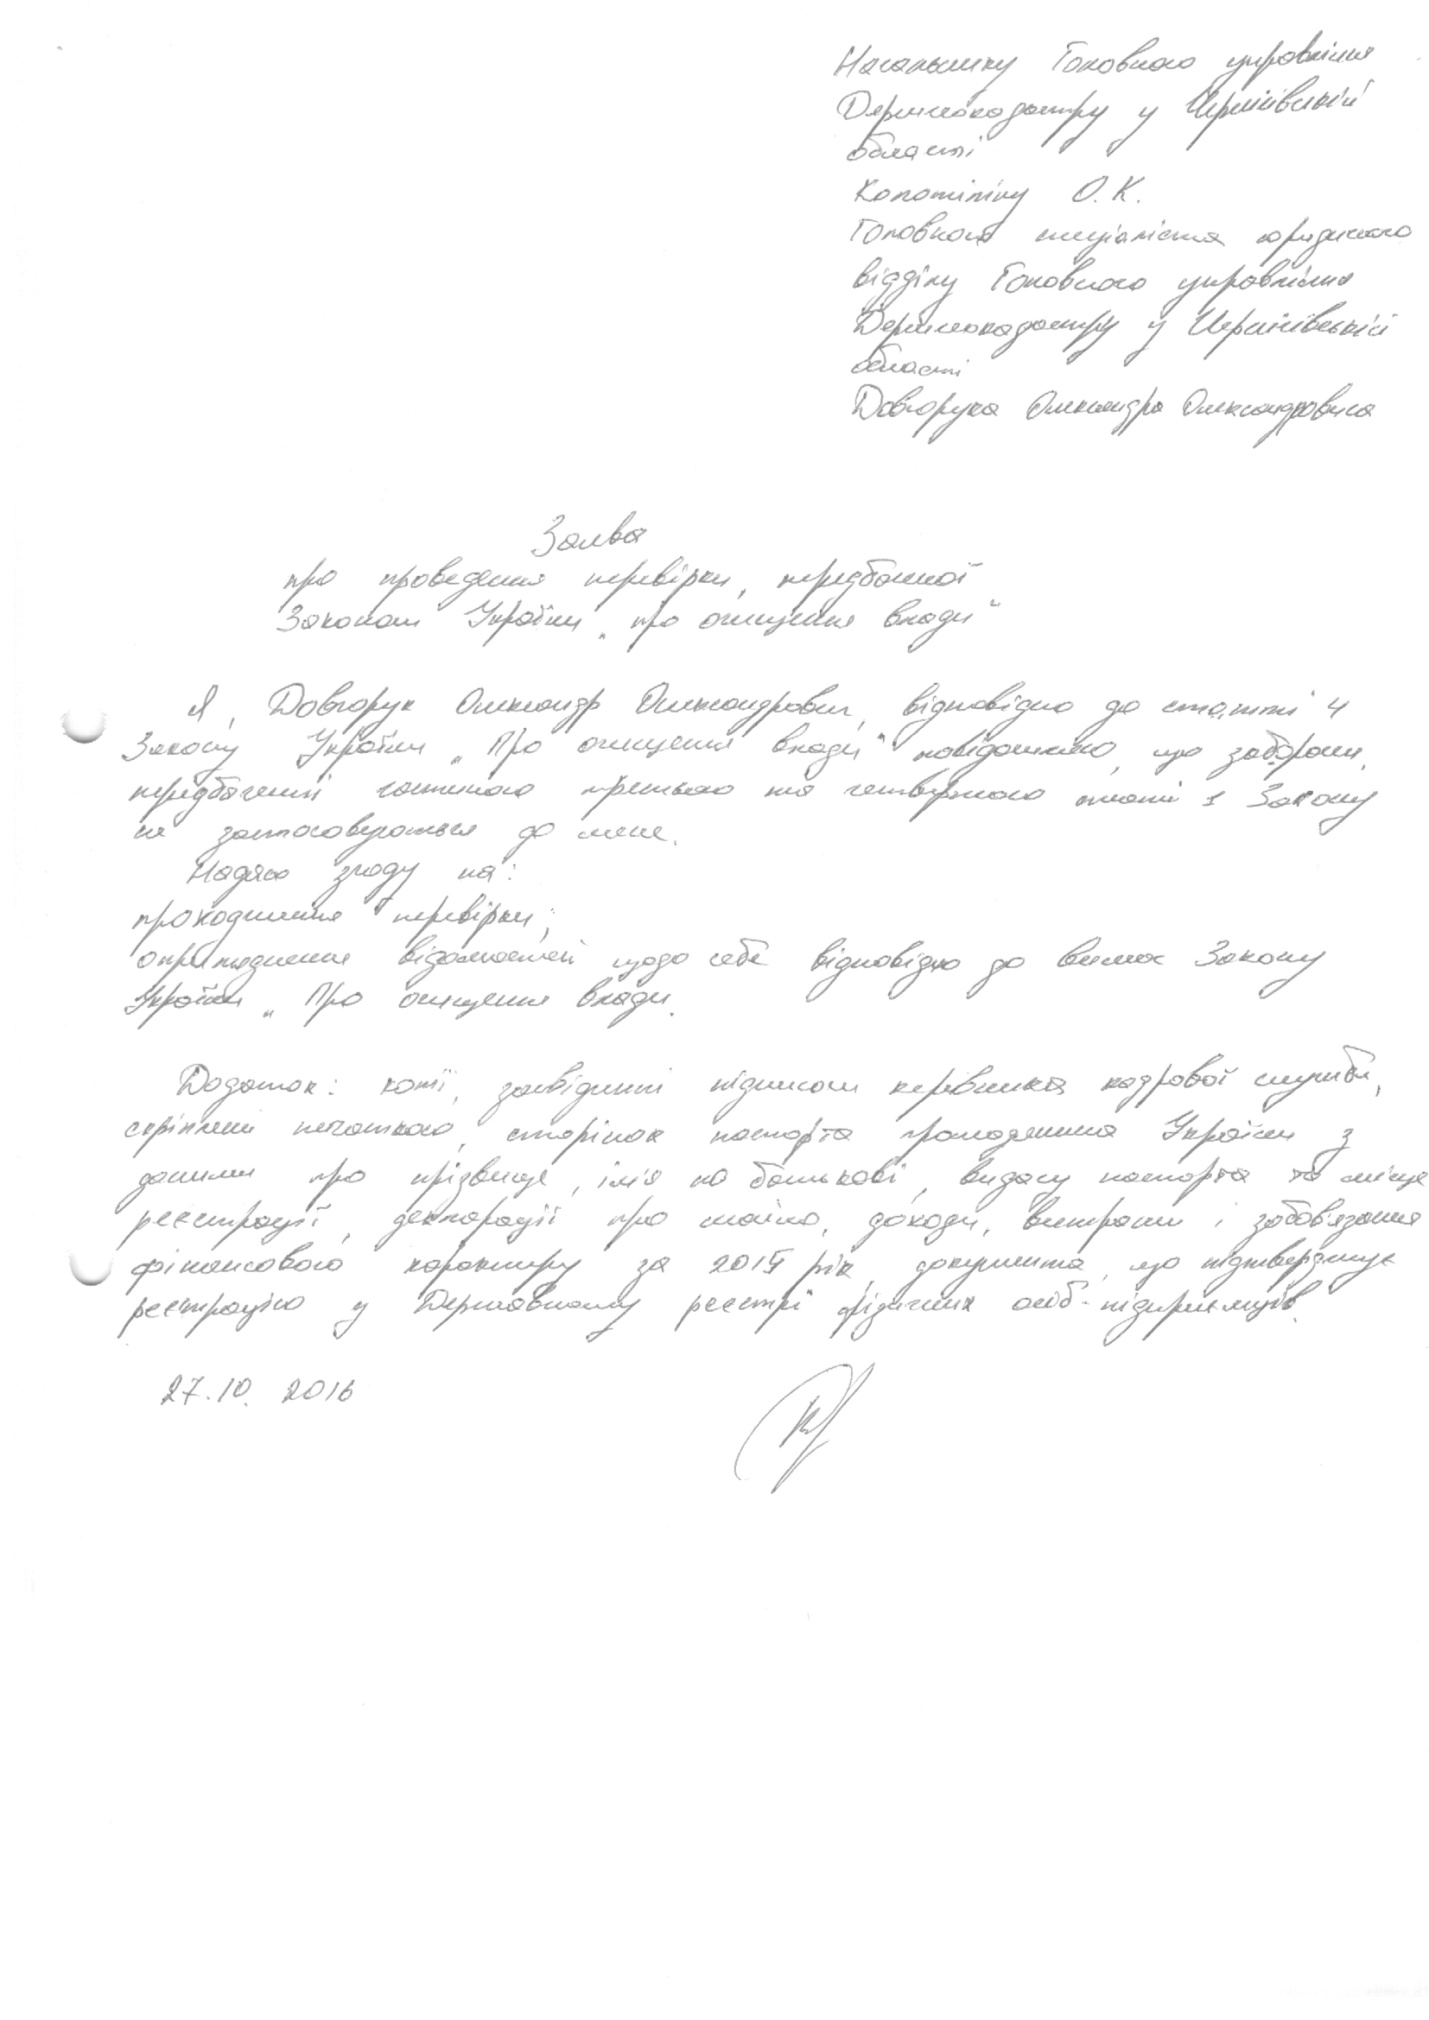 Начальнику Головного управління
Держгеокадастру у Чернігівській
області
Колотіліну О.К.
Головного спеціаліста юридичного
відділу Головного управління
Держгеокадастру у Чернігівській
області
Довгорука Олександра Олександровича
Заява
про проведення перевірки, передбаченої
Законом України „про очищення влади"
Я, Довгорук Олександр Олександрович, відповідно до статті 4
Закону України „Про очищення влади" повідомляю, що заборони,
передбачені частиною третьою та четвертою статті 1 Закону
не застосовуються до мене.
Надаю згоду на:
проходження перевірки;
оприлюднення відомостей щодо себе відповідно до вимог Закону
України „Про очищення влади.
Додаток: копії, засвідчені підписом керівника кадрової служби,
скріплені печаткою, сторінок паспорта громадянина України з
даними про прізвище, ім'я по батькові, видачу паспорта та місце
реєстрації, декларації про майно, доходи, витрати і зобов'язання
фінансового характеру за 2015 рік, документа, що підтверджує
реєстрацію у Державному реєстрі фізичних осіб-підприємців.
27.10.2016